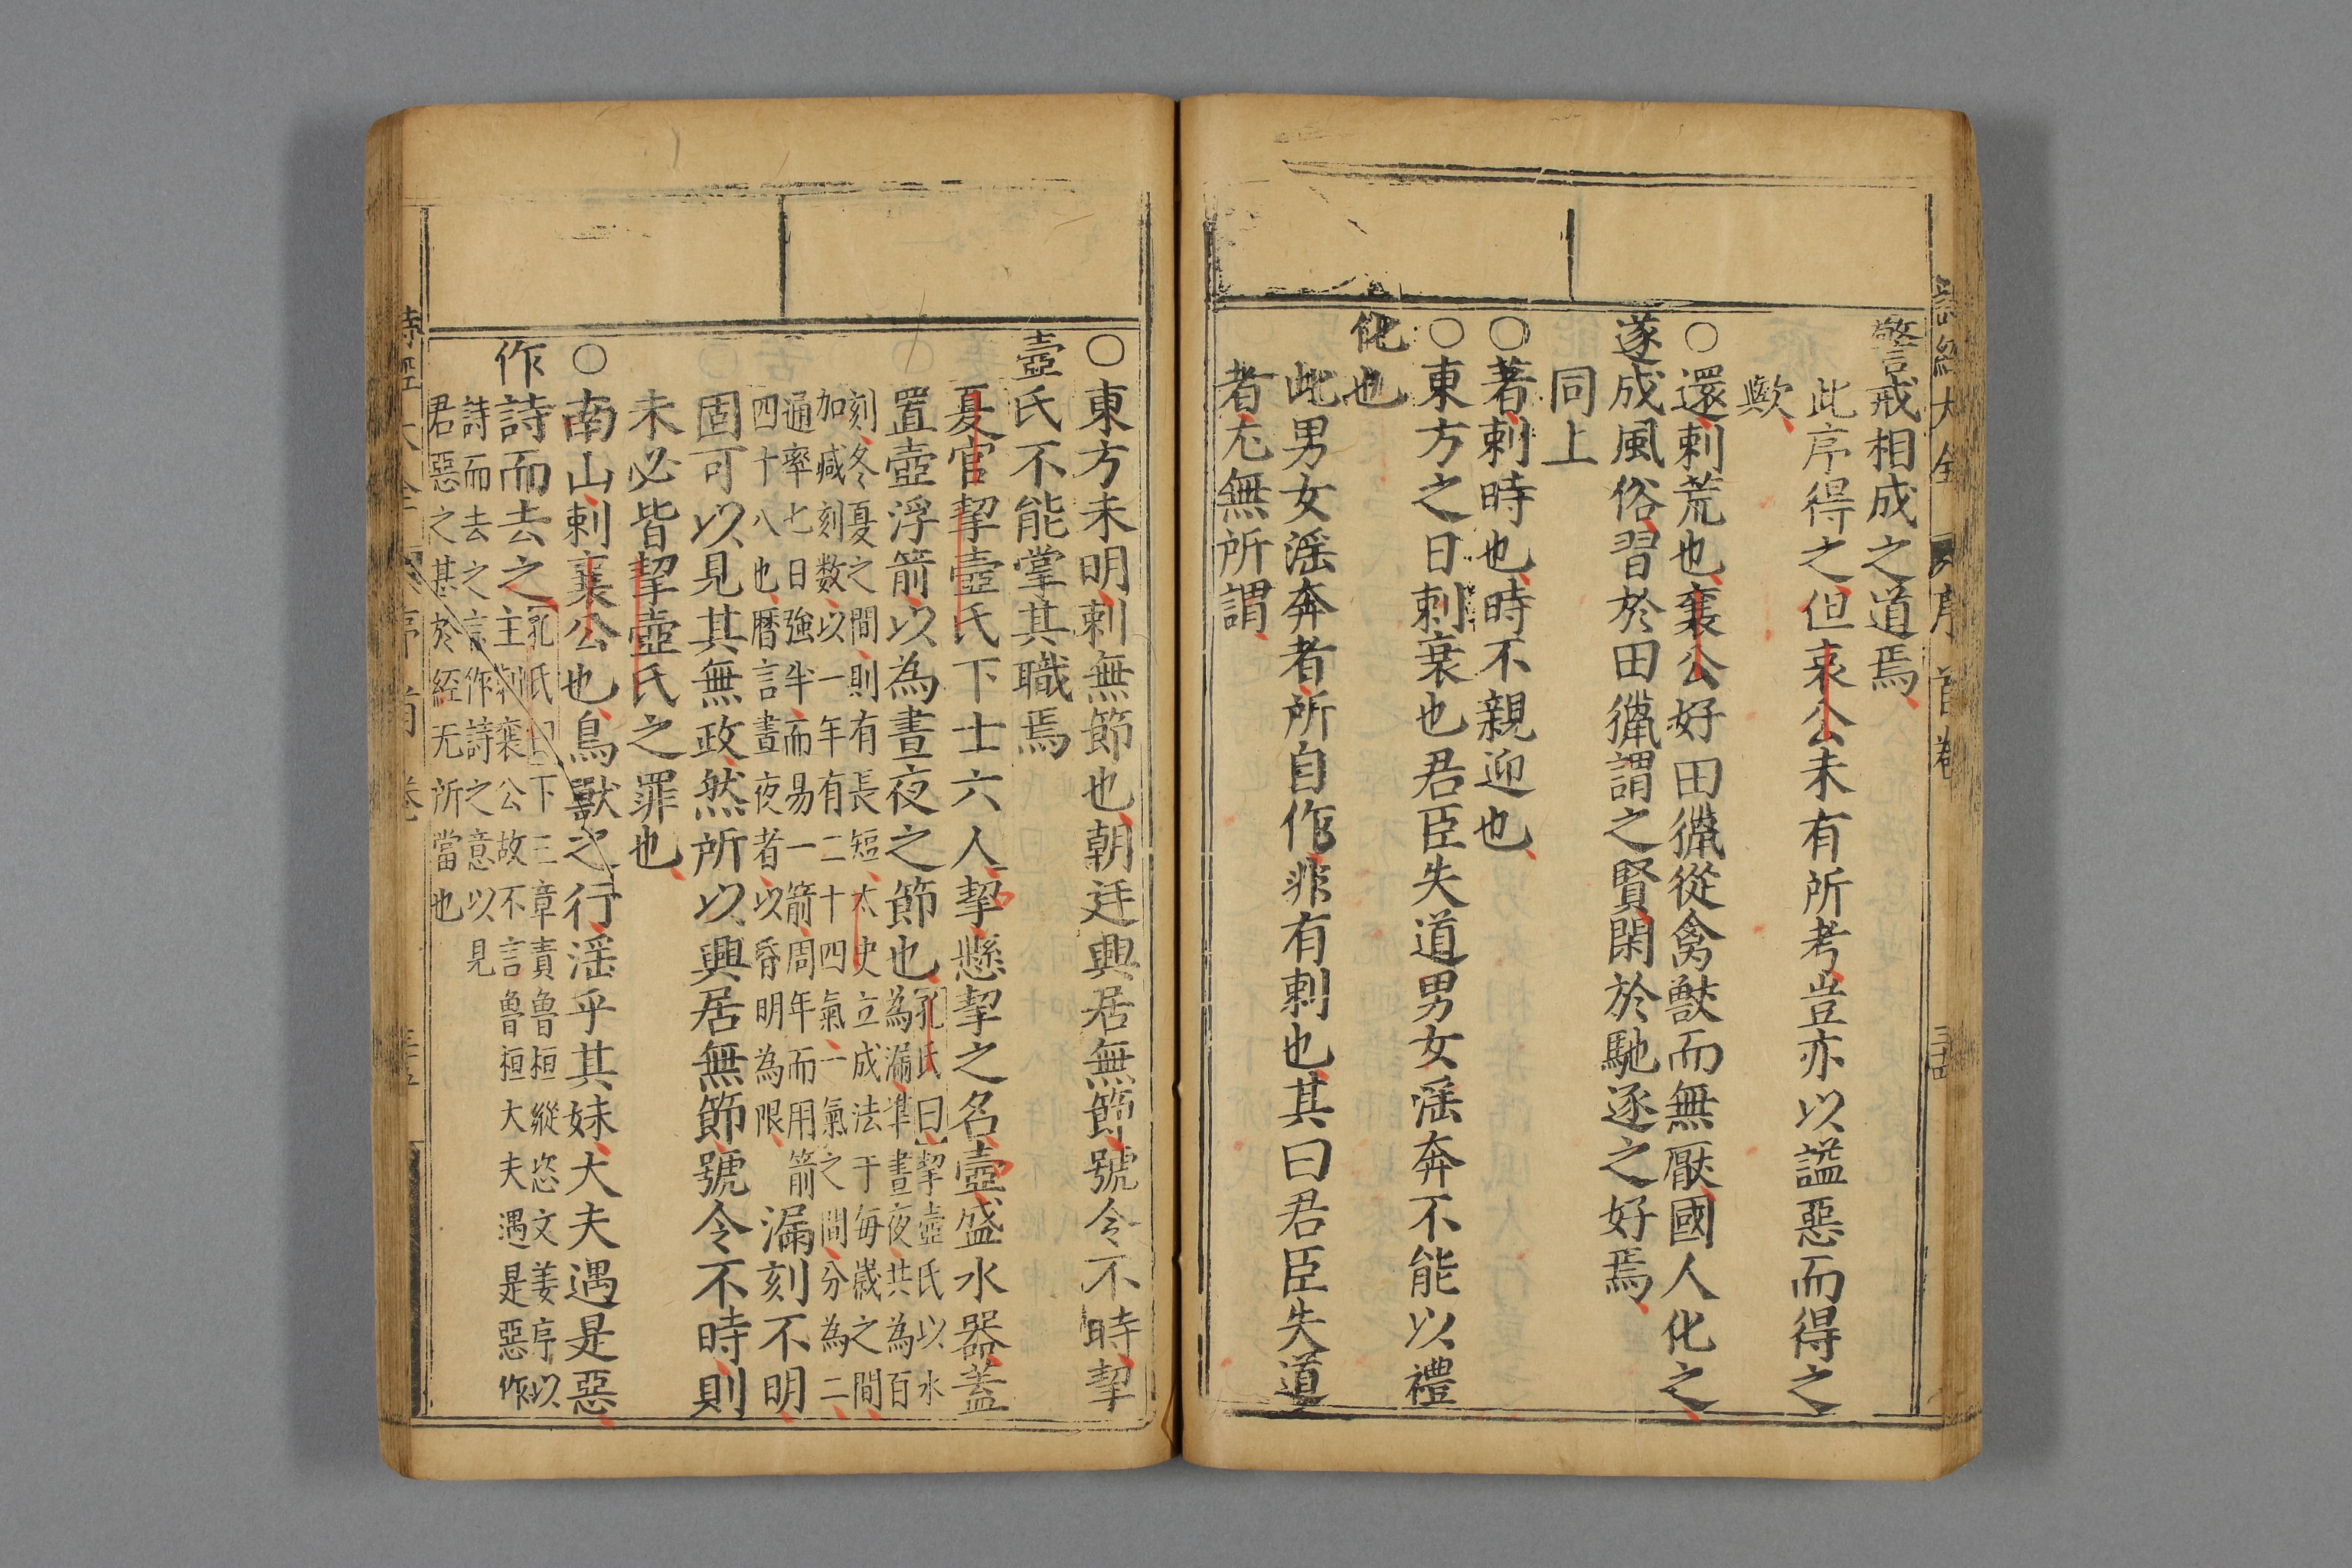 警戒相成之道焉
此序得之但哀公未有所考豈亦以謚惡而得之
歟
○還刺荒也襄公好田獵從禽獸而無厭國人化之
遂成風俗習於田獵謂之賢閑於馳逐之好焉
同上
○著刺時也時不親迎也
○東方之日刺衰也君臣失道男女淫奔不能以禮
化也
此男女淫奔者所自作非有刺也其曰君臣失道
者尤無所謂
○東方未明刺無節也朝廷興居無節號令不時挈
壺氏不能掌其職焉
夏官挈壺氏下士六人挈懸挈之名壺盛水器蓋
置壺浮箭以為晝夜之節也
孔氏曰挈壺氏以水
為漏準晝夜共為百
刻冬夏之間則有長短太史立成法于每歲之間
加减刻数以一年有二十四氣一氣之間分為二
通率七日強半而易一箭周年而用箭
四十八也曆言晝夜者以昏明為限
漏刻不明
固可以見其無政然所以興居無節號令不時則
未必皆挈壺氏之罪也
○南山刺襄公也鳥獸之行淫乎其妹大夫遇是惡
作詩而去之
孔氏曰下三章責魯桓縱恣文姜序以
主刺襄公故不言魯桓大夫遇是惡作
詩而去之言作詩之意以見
君惡之甚於經无所當也
詩經大全
序
首卷
三十四